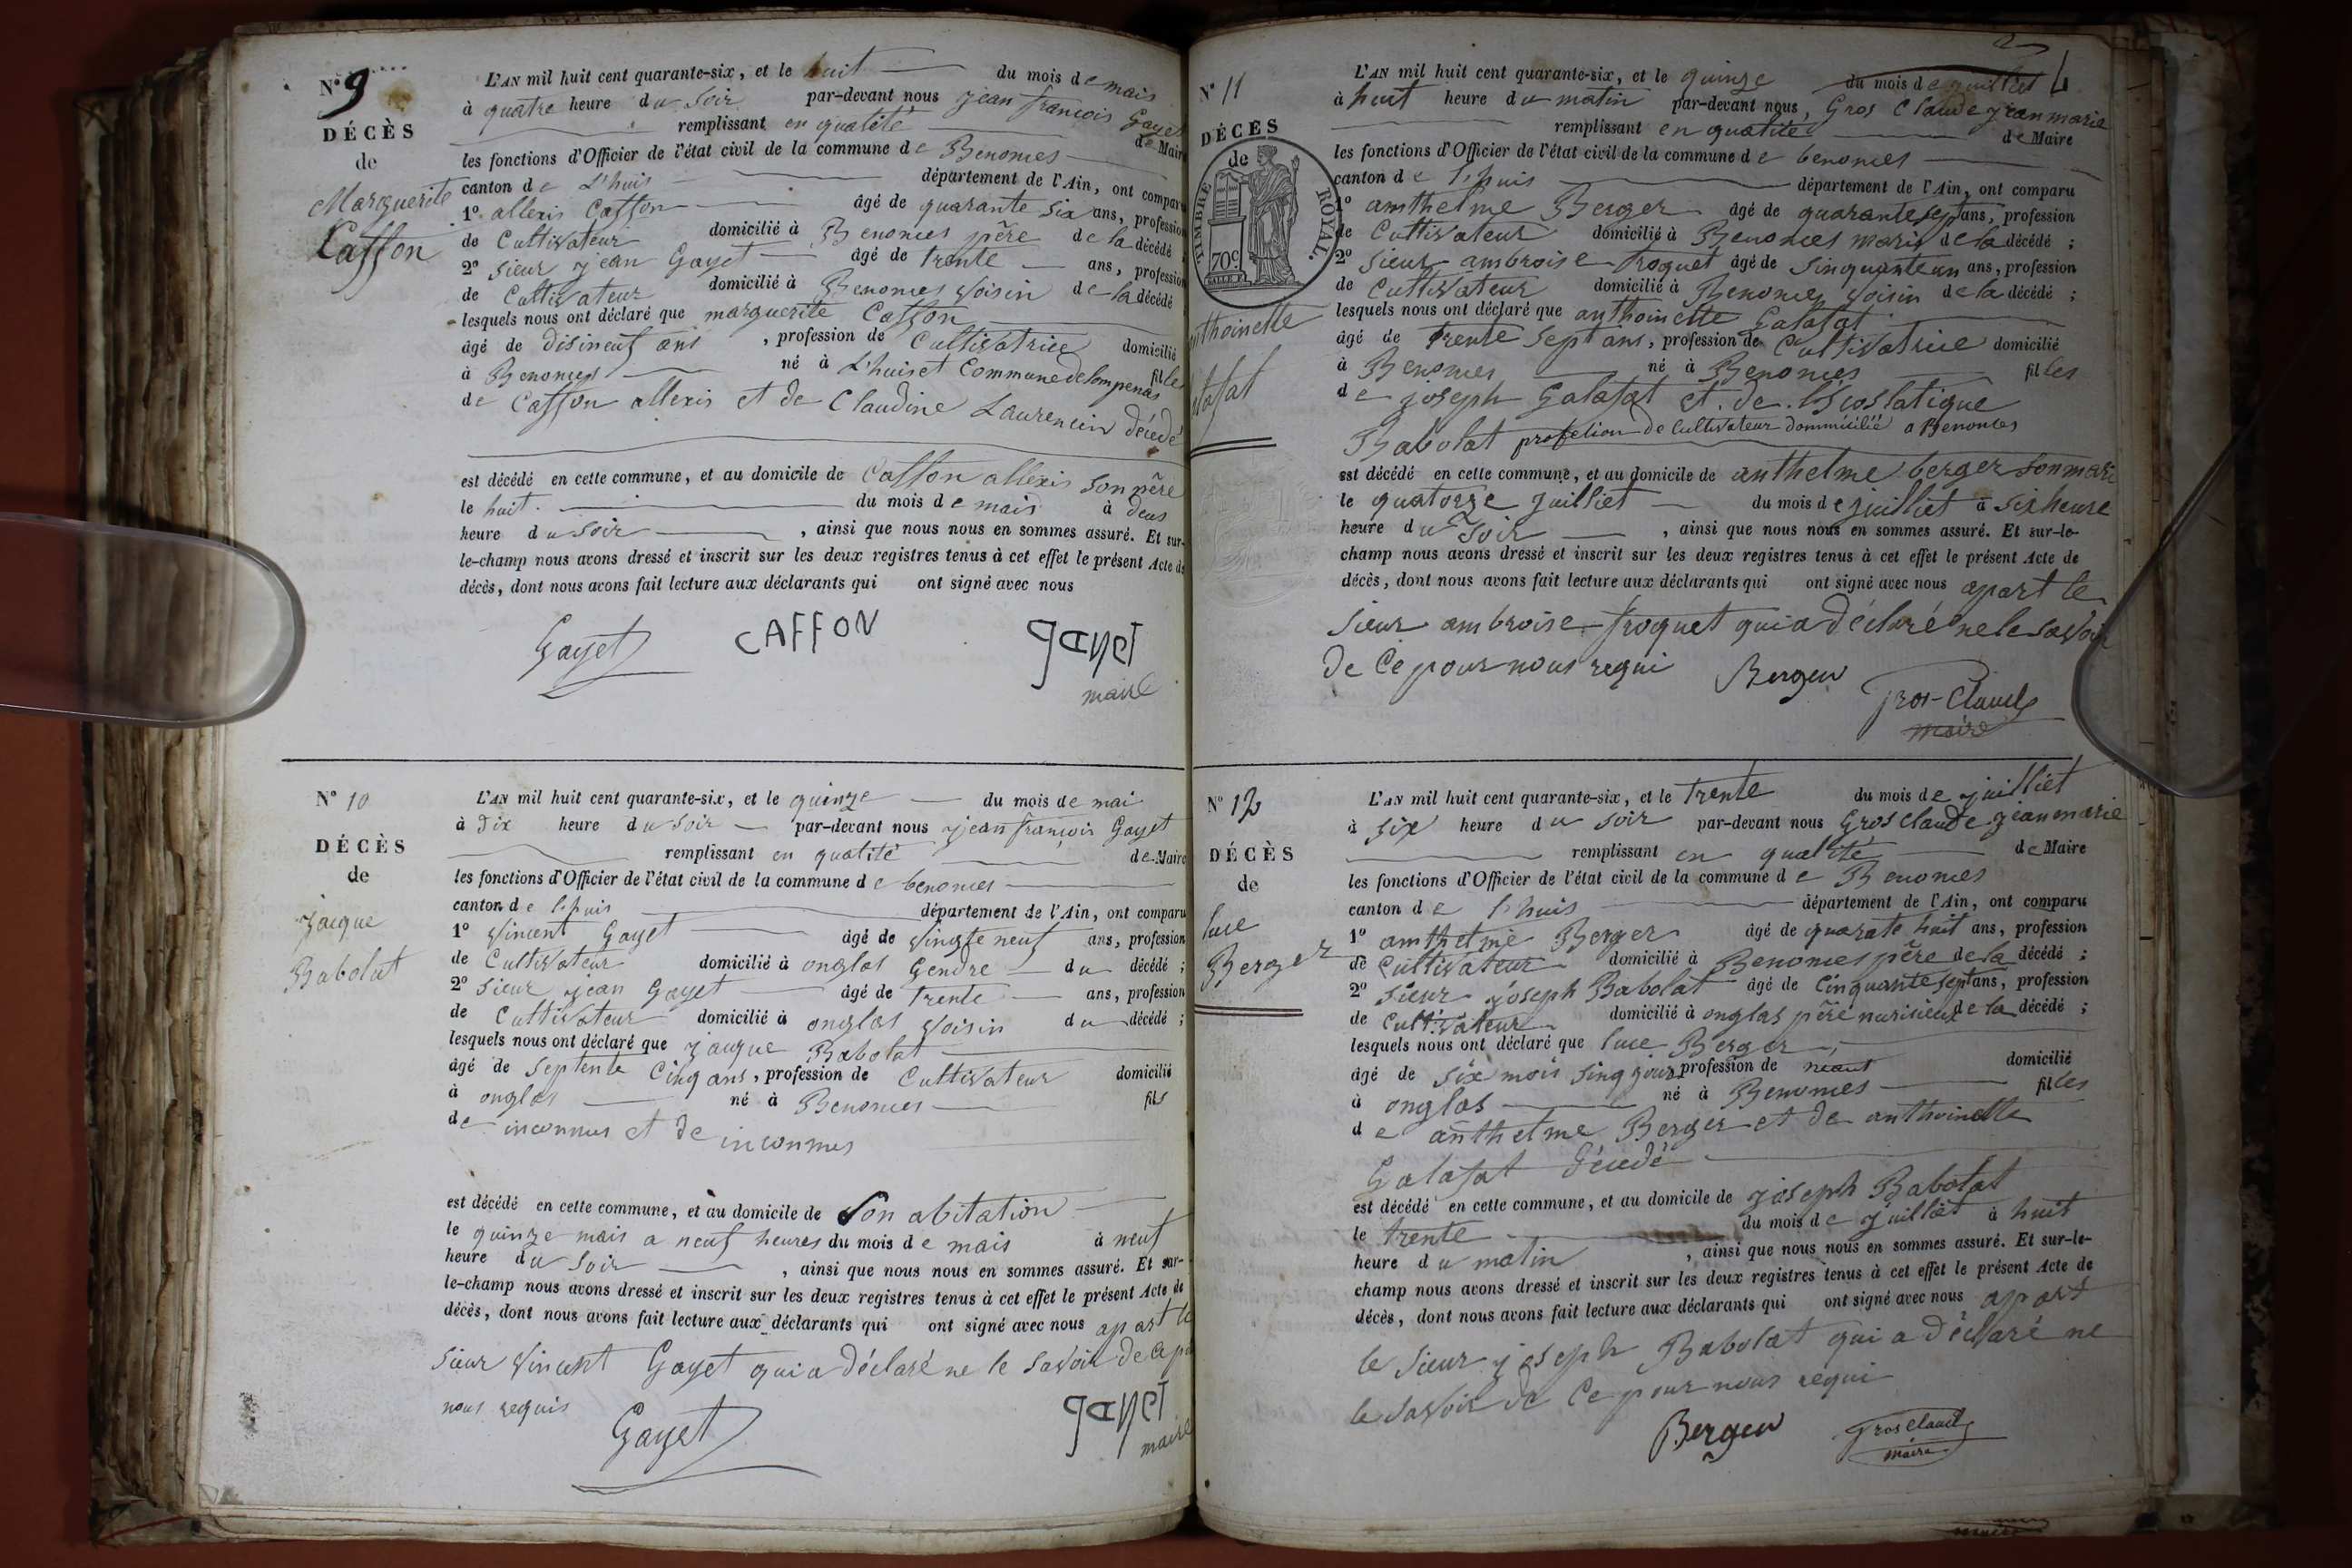 N° 9
DÉCÈS
de
Marguerite
Caffon
L'AN mil huit cent quarante-six, et le huit du mois de mais
à quatre heure du soir par-devant nous jean françois Gayet
remplissant en qualité de Maire
les fonctions d'Officier de l'état civil de la commune de Benonces
canton de L'huis département de l'Ain, ont comparu
1° allexis Caffon âgé de quarante six ans, profession
de Cultivateur domicilié à Benonces père de la décédé
2° sieur jean Gayet âgé de trente ans, profession
de Cultivateur domicilié à Benonces voisin de la décédé
lesquels nous ont déclaré que marguerite Caffon
âgé de disineuf ans, profession de Cultivatrice domicilié
à Benonces né à L'huis et Commune de lompenas filles
de Caffon allexis et de Claudine Laurencin décédé
est décédé en cette commune, et au domicile de Caffon allexis son père
le huit du mois de mais à deus
heure du soir, ainsi que nous nous en sommes assuré. Et sur-
le-champ nous avons dressé et inscrit sur les deux registres tenus à cet effet le présent Acte de
décès, dont nous avons fait lecture aux déclarants qui ont signé avec nous
Gayet CAFFON gayet
maire
N° 10
DÉCÈS
de
jacque
Babolat
L'AN mil huit cent quarante-six, et le quinze du mois de mai
à dix heure du soir par-devant nous jean françois Gayet
remplissant en qualité de Maire
les fonctions d'Officier de l'état civil de la commune de benonces
canton de l'huis département de l'Ain, ont comparu
1° vincent Gayet âgé de vingte neuf ans, profession
de Cultivateur domicilié à onglas Gendre du décédé ;
2° sieur jean Gayet âgé de trente ans, profession
de Cultivateur domicilié à onglas voisin du décédé ;
lesquels nous ont déclaré que jacque Babolat
âgé de septente Cinq ans, profession de Cultivateur domicilié
à onglas né à Benonces fils
de inconnus et de inconnus
est décédé en cette commune, et au domicile de Son abitation
le quinze mais a neuf heures du mois de mais à neuf
heure du soir, ainsi que nous nous en sommes assuré. Et sur-
le-champ nous avons dressé et inscrit sur les deux registres tenus à cet effet le présent Acte de
décès, dont nous avons fait lecture aux déclarants qui ont signé avec nous apart le
sieur vincent Gayet qui a déclaré ne le savoir de ce
nous requis
Gayet gayet
maire
4
N° 11
DÉCÈS
de
TIMBRE ROYAL.
70c
anthoinette
Galafat
L'AN mil huit cent quarante-six, et le quinze du mois de juilliet
à huit heure du matin par-devant nous, Gros Claude jean marie
remplissant en qualité de Maire
les fonctions d'Officier de l'état civil de la commune de benonces
canton de l'huis département de l'Ain, ont comparu
1° amthelme Berger âgé de quarante sept ans, profession
de Cultivateur domicilié à Benonces maris de la décédé ;
2° sieur ambroise troquet âgé de sinquante un ans, profession
de Cultivateur domicilié à Benonces voisin de la décédé ;
lesquels nous ont déclaré que anthoinette Galafat
âgé de trente sept ans, profession de Cultivatrice domicilié
à Benonces né à Benonces filles
de joseph Galafat et de
Babolat profetion de Cultivateur dommicilié a Benonces
est décédé en cette commune, et au domicile de anthelme berger son mari
le quatorze juilliet du mois de juilliet à six heure
heure du soir, ainsi que nous nous en sommes assuré. Et sur-le-
champ nous avons dressé et inscrit sur les deux registres tenus à cet effet le présent Acte de
décès, dont nous avons fait lecture aux déclarants qui ont signé avec nous apart le
sieur ambroise troquet qui a déclaré ne le savoir
de Ce pour nous requi Berger
Gros-Claude
maire
N° 12
DÉCÈS
de
luce
Berger
L'AN mil huit cent quarante-six, et le trente du mois de juilliet
à six heure du soir par-devant nous Gros Claude jean marie
remplissant en qualité de Maire
les fonctions d'Officier de l'état civil de la commune de Benonces
canton de l'huis département de l'Ain, ont comparu
1° amthelme Berger âgé de quarate huit ans, profession
de Cultivateur domicilié à Benonces père de la décédé ;
2° sieur joseph Babolat âgé de Cinquante sept ans, profession
de Cultivateur domicilié à onglas père de la décédé ;
lesquels nous ont déclaré que luce Berger
âgé de six mois sinq jour profession de néant domicilié
à onglas né à Benonces filles
de anthelme Berger et de anthoinette
Galafat décédé
est décédé en cette commune, et au domicile de joseph Babolat
le trente du mois de juillet à huit
heure du matin, ainsi que nous nous en sommes assuré. Et sur-le-
champ nous avons dressé et inscrit sur les deux registres tenus à cet effet le présent Acte de
décès, dont nous avons fait lecture aux déclarants qui ont signé avec nous apart
le sieur joseph Babolat qui a déclaré ne
le savoir de Ce pour nous requi
Berger Gros Claude
maire